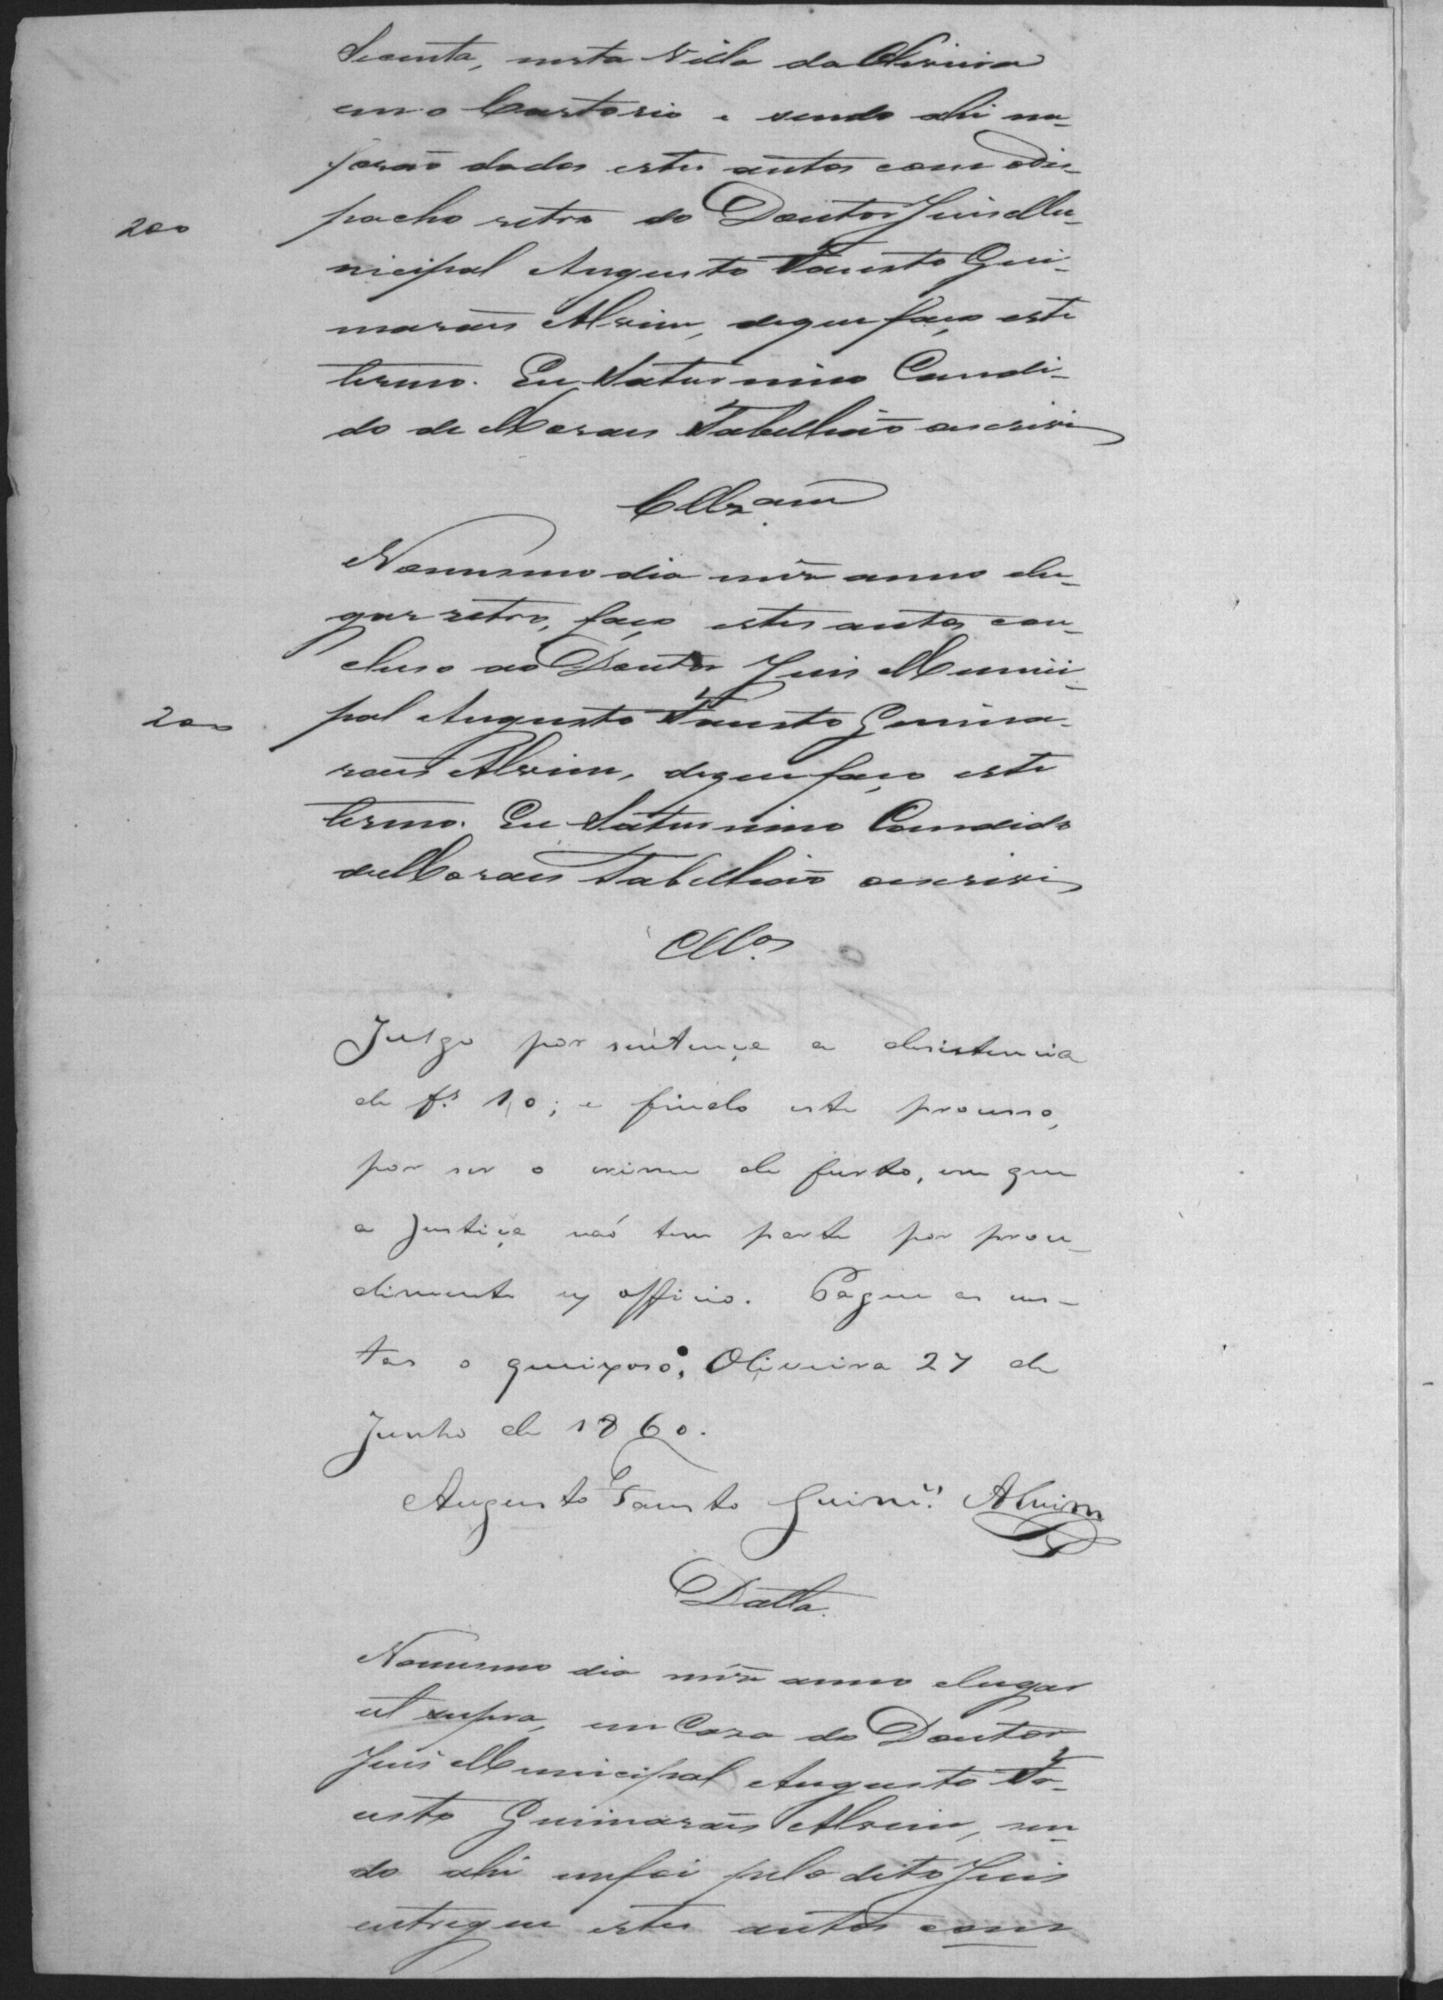 secenta, nesta Villa da Oliveira
em o Cartorio e sendo ahi me
forão dados estes autos com o des-
200 pacho retro do Doutor Juis Mu-
nicipal Augusto Fausto Gui-
marais Alvim, de que faço este
termo. Eu Saturnino Candi-
do de Morais Tabellião escrivi
Cllzam
No mesmo dia mes anno e lu-
gar retro, faço estes autos con-
cluso ao Doutor Juis Munici-
200 pal Augusto Fausto Guima-
rais Alvim, de que faço este
termo. Eu Saturnino Candido
de Morais Tabellião escrivi
Cllos
Julgo por sentença a desistencia
de fs. 10; e findo este processo,
por ser o crime de furto, em que
a Justiça não tem parte por proce-
dimento ex officio. Pague as cus-
tas o queixoso. Oliveira 27 de
Junho de 1860.
Augusto Fausto Guims. Alvim
Datta.
No mesmo dia mes anno e lugar
ut supra, em Caza do Doutor
Juis Municipal Augusto Fa-
usto Guimarais Alvim, sen-
do ahi me foi pelo dito Juis
entregue estes autos com